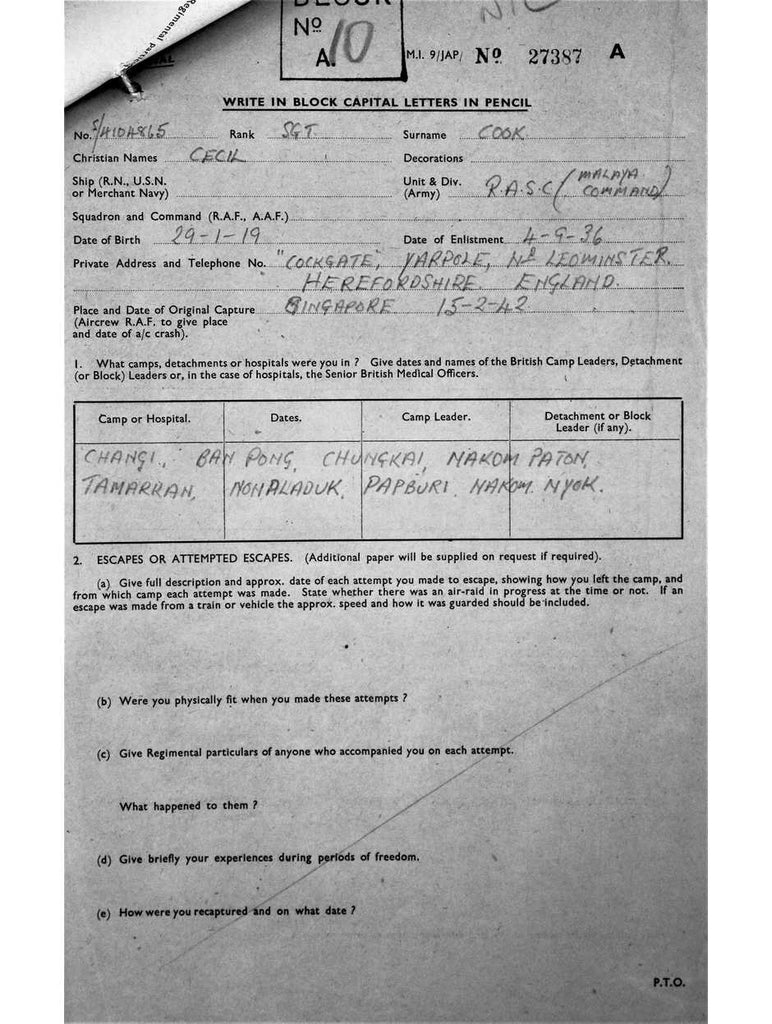 Regimental partic
BLOCK
Nº
A. 10
NIL
M.I. 9/JAP/ Nº 27387 A
WRITE IN BLOCK CAPITAL LETTERS IN PENCIL
No. S/4104865 Rank SGT Surname COOK
Christian Names CECIL Decorations
Ship (R.N., U.S.N. or Merchant Navy) Unit & Div. (Army) R.A.S.C (MALAYA COMMAND)
Squadron and Command (R.A.F., A.A.F.)
Date of Birth 29-1-19 Date of Enlistment 4-9-36
Private Address and Telephone No. "COCKGATE", YARPOLE, Nr LEOMINSTER.
HEREFORDSHIRE. ENGLAND.
Place and Date of Original Capture SINGAPORE 15-2-42
(Aircrew R.A.F. to give place
and date of a/c crash).
1. What camps, detachments or hospitals were you in ? Give dates and names of the British Camp Leaders, Detachment
(or Block) Leaders or, in the case of hospitals, the Senior British Medical Officers.
Camp or Hospital. Dates. Camp Leader. Detachment or Block Leader (if any).
CHANGI, BAN PONG, CHUNGKAI, NAKOM PATON,
TAMARRAN, NONPLADUK, PAPBURI, NAKOM NYOK.
2. ESCAPES OR ATTEMPTED ESCAPES. (Additional paper will be supplied on request if required).
(a) Give full description and approx. date of each attempt you made to escape, showing how you left the camp, and
from which camp each attempt was made. State whether there was an air-raid in progress at the time or not. If an
escape was made from a train or vehicle the approx. speed and how it was guarded should be included.
(b) Were you physically fit when you made these attempts ?
(c) Give Regimental particulars of anyone who accompanied you on each attempt.
What happened to them ?
(d) Give briefly your experiences during periods of freedom.
(e) How were you recaptured and on what date ?
P.T.O.